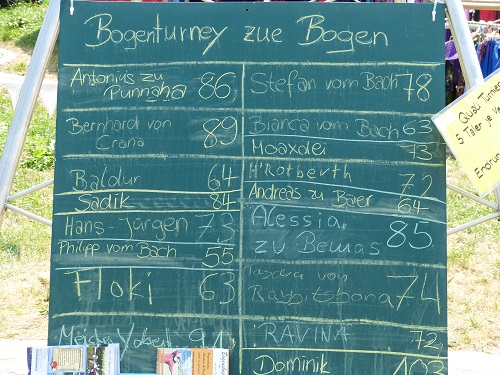 Bogenturney zue Bogen
Antonius zu
Punnaha 86
Bernhardt von
Crana 89
Baldur 64
Sadik 84
Hans-Jürgen 73
Philipp vom Bach 55
Floki 63
Meister
Stefan vom Bach 78
Bianca vom Bach 63
Moaxdei 73
H'Rotberth 72
Andreas zu Baer 64
Alessia
zu Bemas 85
von
74
RAVINA 72
Dominik 103
Quali-Turnier
5 Taler